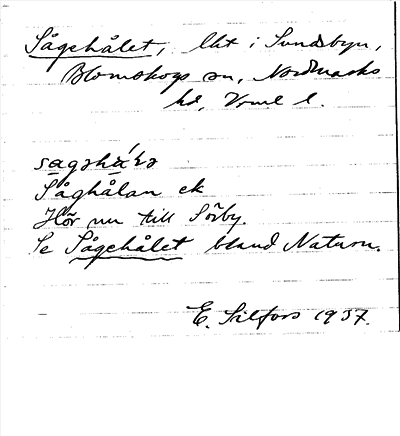 Sågehålet, lht i Sundsbyn,
Blomskogs sn, Nordmarks
hd, Vrml l.
sagəhá̀lə
Såghålan ek
Hör nu till Sörby.
Se Sågehålet bland Naturn.
E. Silfors 1937.